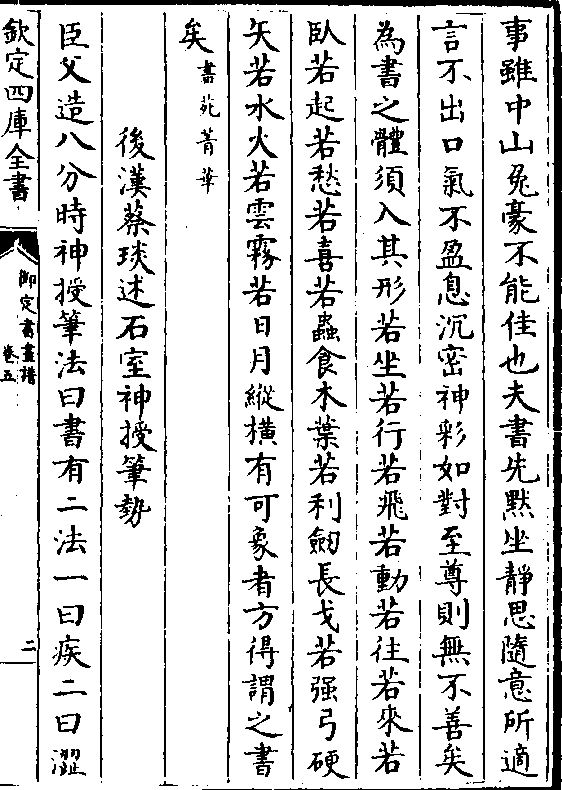 事雖中山兔豪不能佳也夫書先默坐靜思隨意所適
言不出口氣不盈息沉密神彩如對至尊則無不善矣
為書之體須入其形若坐若行若飛若動若往若來若
臥若起若愁若喜若蟲食木葉若利劒長戈若强弓硬
矢若水火若雲霧若日月縱橫有可象者方得謂之書
矣書苑菁華
後漢蔡琰述石室神授筆勢
臣父造八分時神授筆法曰書有二法一曰疾二曰澀
欽定四庫全書
御定書畫譜
卷五
二